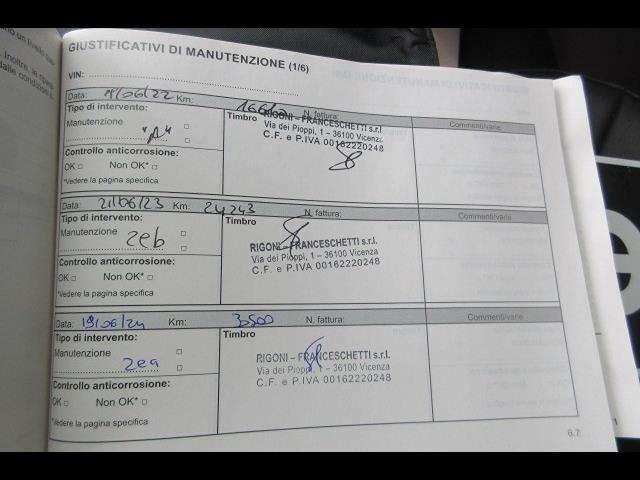 GIUSTIFICATIVI DI MANUTENZIONE (1/6)
VIN:
Data: /06/22 Km: N. fattura: Commenti/varie
Tipo di intervento: Timbro RIGONI – FRANCESCHETTI s.r.l.
Manutenzione Via dei Pioppi, 1 – 36100 Vicenza
C.F. e P.IVA 00162220248
Controllo anticorrosione:
OK Non OK*
*Vedere la pagina specifica
Data: 21/06/23 Km: 24243 N. fattura: Commenti/varie
Tipo di intervento: Timbro
Manutenzione zeb RIGONI – FRANCESCHETTI s.r.l.
Via dei Pioppi, 1 – 36100 Vicenza
Controllo anticorrosione: C.F. e P.IVA 00162220248
OK Non OK*
*Vedere la pagina specifica
Data: 19/06/24 Km: N. fattura: Commenti/varie
Tipo di intervento: Timbro
Manutenzione zea RIGONI – FRANCESCHETTI s.r.l.
Via dei Pioppi, 1 – 36100 Vicenza
Controllo anticorrosione: C.F. e P.IVA 00162220248
OK Non OK*
*Vedere la pagina specifica
6.7